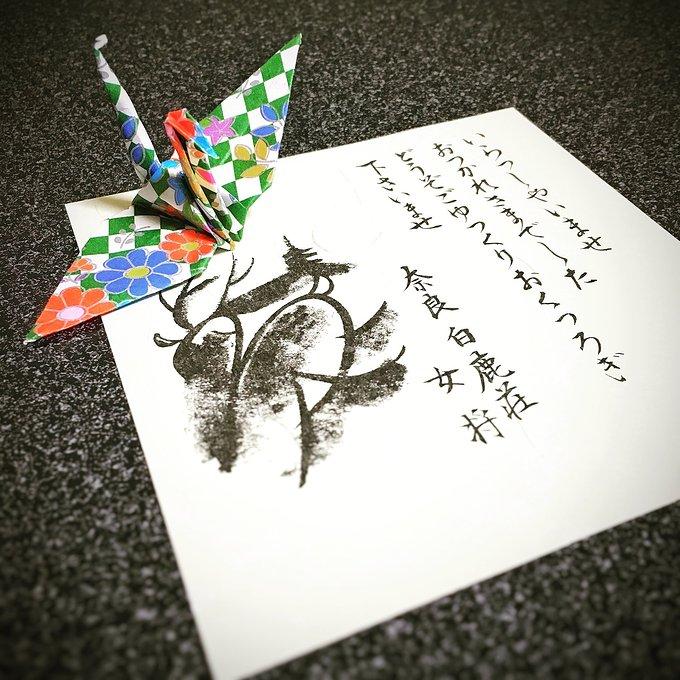 いらっしゃいませ
おつかれさまでした
どうぞごゆっくりおくつろぎ
下さいませ
奈良 白鹿荘
女将